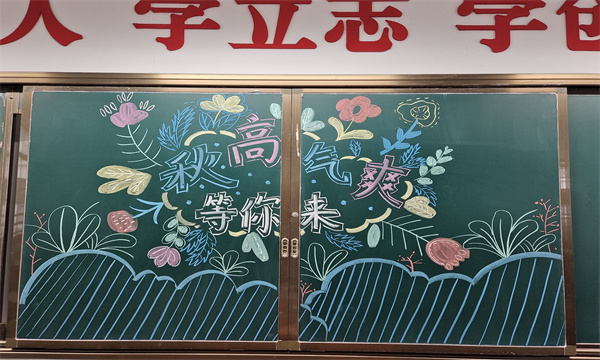 人 学立志 学创
秋高气爽
等你来